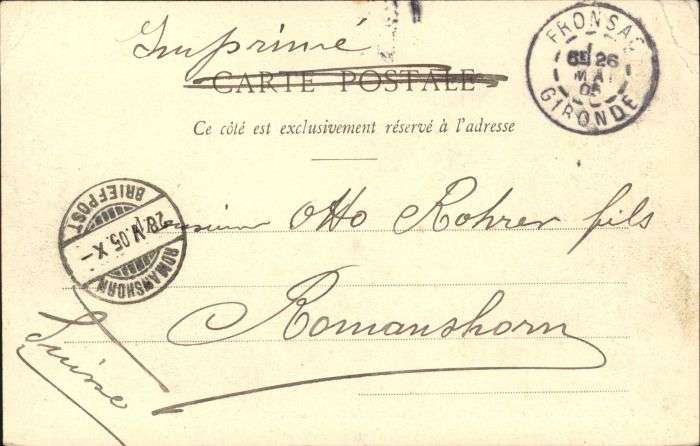 Imprimé
CARTE POSTALE
Ce côté est exclusivement réservé à l'adresse
FRONSAC
6E 26
MAI
05
GIRONDE
BRIEFPOST
28.V.05.X-
ROMANSHORN
Monsieur Otto Rohrer fils
Romanshorn
Suisse